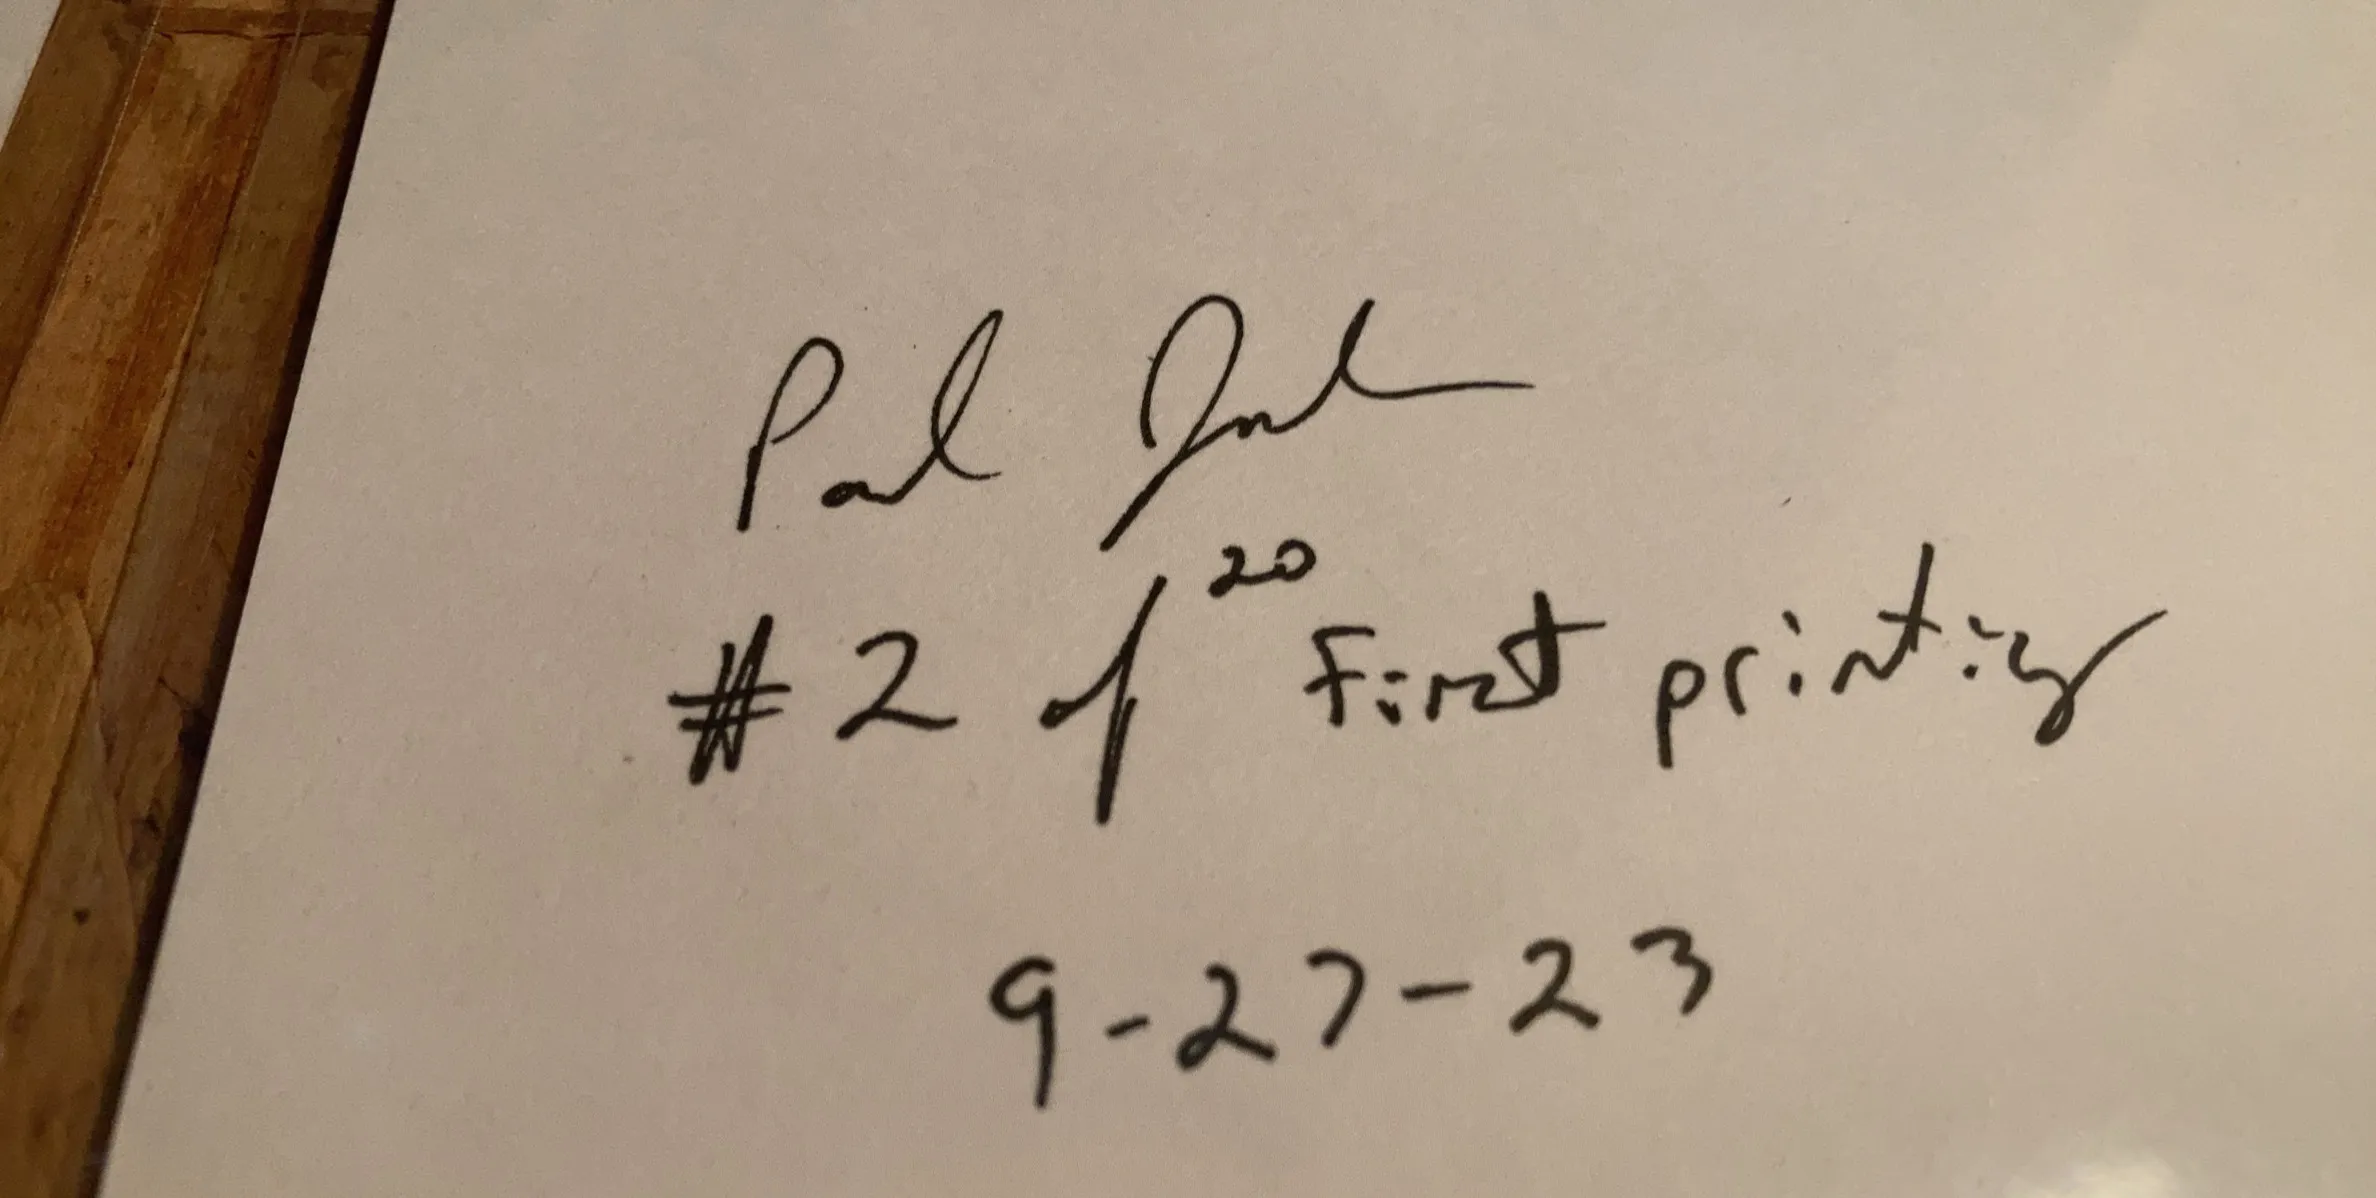 Paul
#2 of 20 First printing
9-27-23